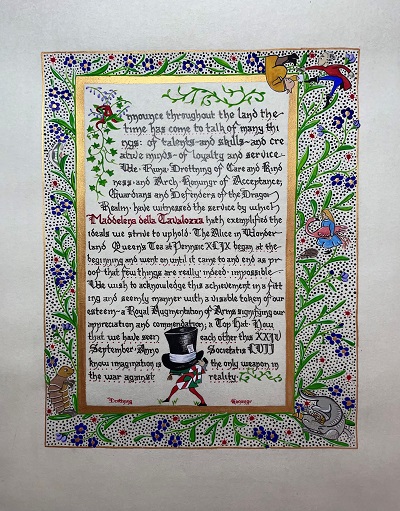 Announce throughout the land the
time has come to talk of many thi
ngs: of talents and skills and cre
ative minds of loyalty and service.
We Runa Drottning of Care and Kind
ness and Arch Konungr of Acceptance,
Guardians and Defenders of the Dragon
Realm, have witnessed the service by which
Maddelena della Cavalozza hath exemplified the
ideals we strive to uphold. The Alice in Wonder
land Queen's Tea at Pennsic XLIX began at the
beginning and went on until it came to and end as pr
oof that few things are really indeed impossible
We wish to acknowledge this achievement in a fitt
ing and seemly manner with a visable token of our
esteem a Royal Augmentation of Arms signifying our
appreciation and commendation; a Top Hat. Now
that we have seen each other this XXIV
September Anno Societatis LVII
know imagination is the only weapon in
the war against reality.
Drottning Konungr